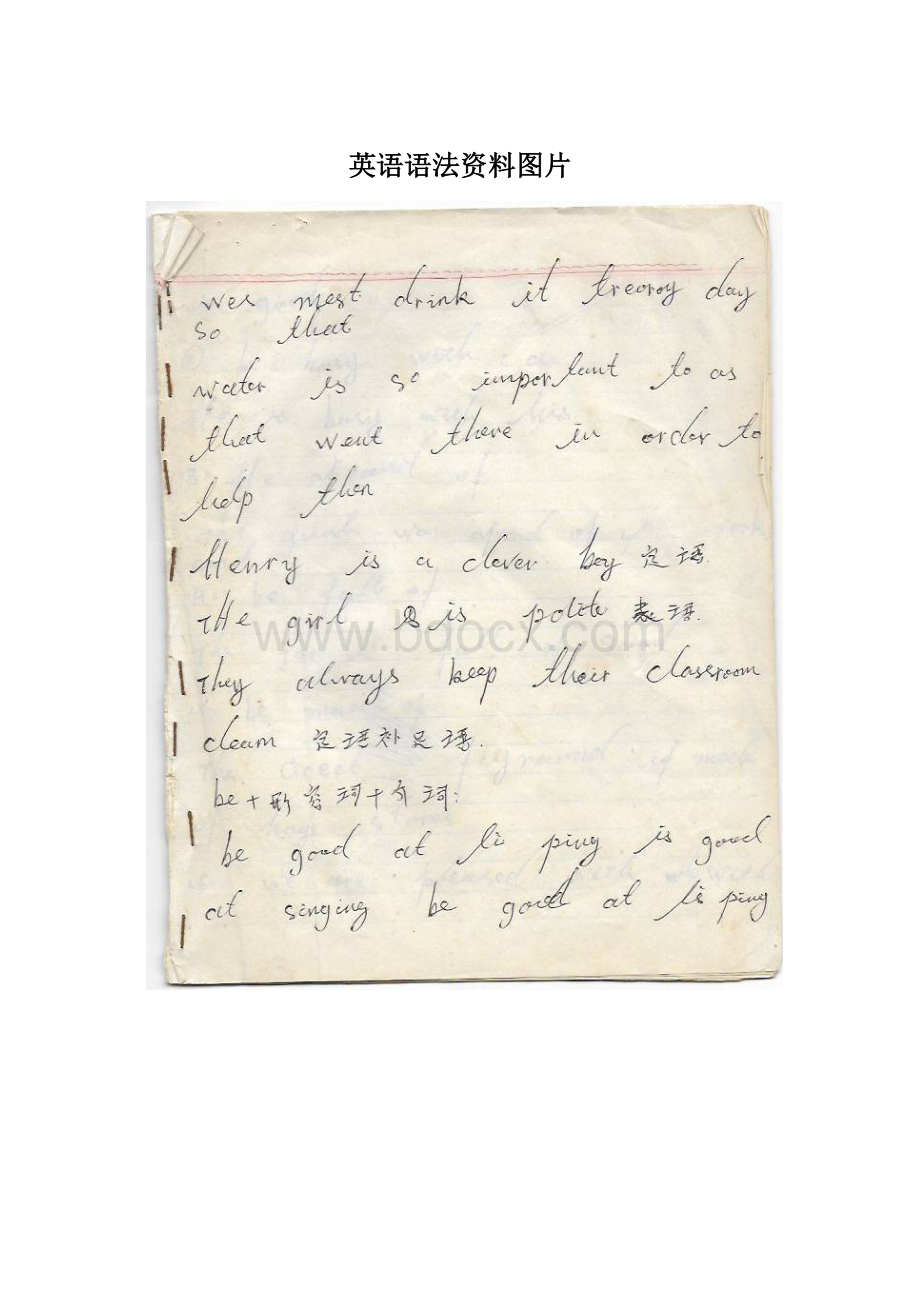 英语语法资料图片
wes mest drink it treoroy day
so that
water is so important to as
that went there in order to
help then
Henry is a clever boy 定语.
THe girl is polite 表语.
They always keep their classroom
cleam 定语补足语.
be+形容词+介词:
be good at li ping is good
at singing be good at li ping
www.bdocx.com